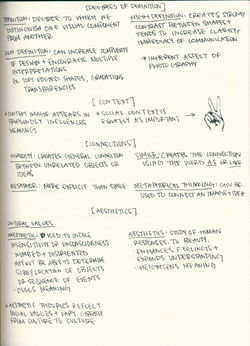 [DEGREES OF DEFINITION]
DEFINITION: DEGREE TO WHICH WE
DISTINGUISH ONE VISUAL COMPONENT
FROM ANOTHER
HIGH DEFINITION: CREATES STRONG
CONTRAST BETWEEN SHAPES +
TENDS TO INCREASE CLARITY +
IMMEDIACY OF COMMUNICATION
LOW DEFINITION: CAN INCREASE COMPLEXITY
OF DESIGN + ENCOURAGE MULTIPLE
INTERPRETATIONS
EX. SOFT-EDGED SHAPES, GRADATIONS
TRANSPARENCIES
* INHERENT ASPECT OF
PHOTOGRAPHY
[CONTEXT]
CONTEXT IMAGE APPEARS IN
PROFOUNDLY INFLUENCES
MEANING
* SOCIAL CONTEXT IS
EQUALLY AS IMPORTANT
[CONNECTIONS]
ANALOGY: CREATES GENERAL CONNECTION
BETWEEN UNRELATED OBJECTS OR
IDEAS
SIMILE: CREATES THE CONNECTION
USING THE WORD AS OR LIKE
METAPHOR: MORE EXPLICIT THAN SIMILE
METAPHORICAL THINKING: CAN BE
USED TO CONNECT AN IMAGE + IDEA
[AESTHETICS]
CULTURAL VALUES
ANESTHETIC: USED TO INDUCE
INSENSITIVITY OR UNCONSCIOUSNESS
• NUMBED + DISORIENTED
• MAY NOT BE ABLE TO DETERMINE
SIZE/LOCATION OF OBJECTS
OR SEQUENCE OF EVENTS
• DULLS MEANING
AESTHETICS: STUDY OF HUMAN
RESPONSES TO BEAUTY.
• ENHANCES FEELINGS +
EXPANDS UNDERSTANDING
• HEIGHTENS MEANING
* AESTHETIC THEORIES REFLECT
VALUES + VARY GREATLY
FROM CULTURE TO CULTURE